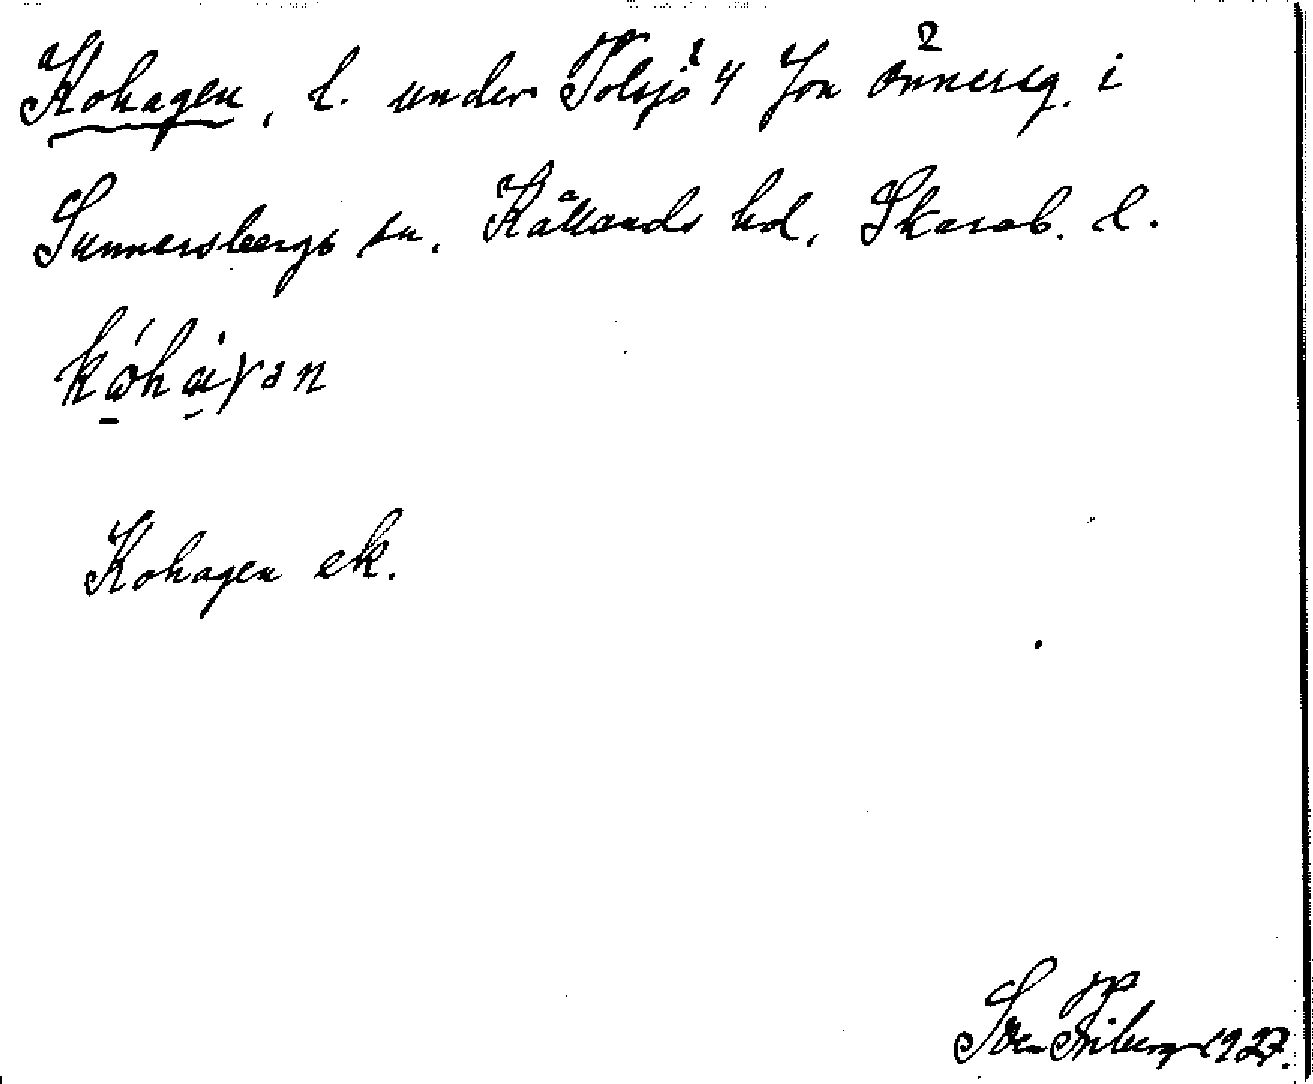 Kohagen, l. under Tolsjö 4 Jon Önnersg. i
2
Sunnersbergs sn. Kållands hd, Skarab. l.
kóhàγən
Kohagen ek.
Sven Friberg 1927.